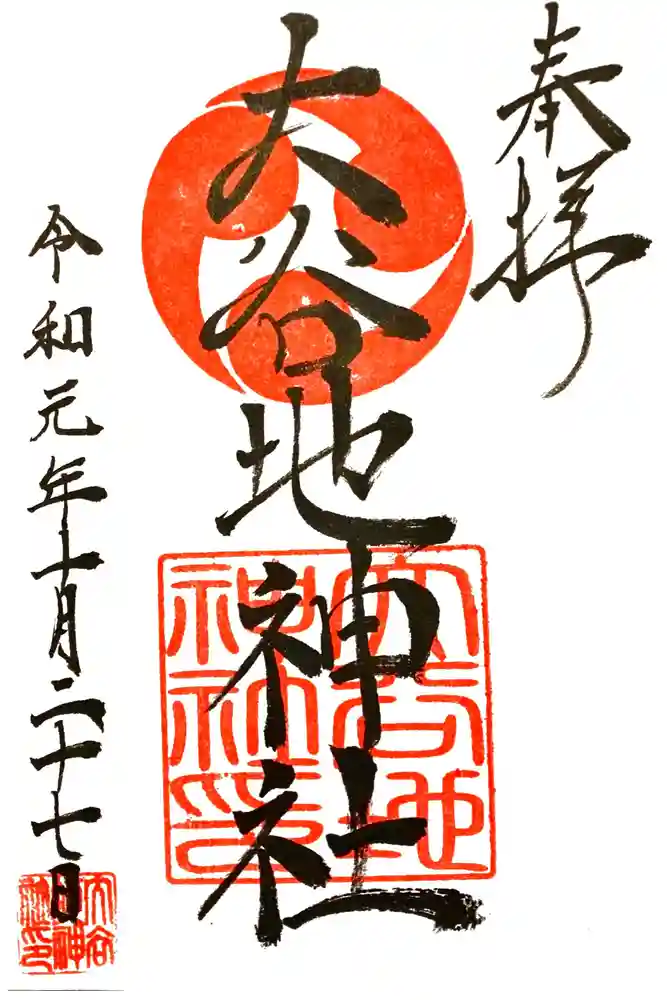 奉拝
大谷地神社
大谷地
神社印
令和元年十一月二十七日
大谷
地神
社印